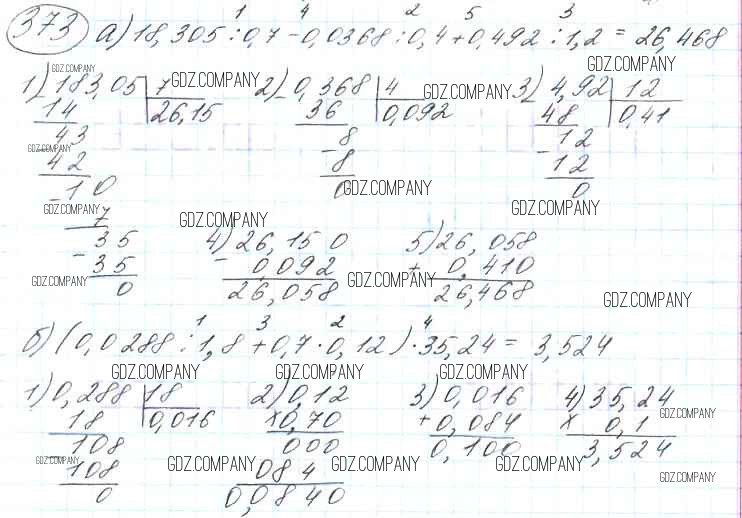 373 а) 18,305 : 0,7 - 0,0368 : 0,4 + 0,492 : 1,2 = 26,468
1 4 2 5 3
GDZ.COMPANY GDZ.COMPANY GDZ.COMPANY GDZ.COMPANY
1) 183,05 7 2) 0,368 4 3) 4,92 12
14 26,15 36 0,092 48 0,41
43 8 12
GDZ.COMPANY
42 - 8 - 12
- 10 0 0
GDZ.COMPANY GDZ.COMPANY
GDZ.COMPANY GDZ.COMPANY
7
35 4) 26,150 5) 26,058
- 35 - 0,092 + 0,410
GDZ.COMPANY GDZ.COMPANY
0 26,058 26,468
GDZ.COMPANY
1 3 2 4
б) (0,0288 : 1,8 + 0,7 · 0,12) · 35,24 = 3,524
GDZ.COMPANY GDZ.COMPANY GDZ.COMPANY
1) 0,288 18 2) 0,12 3) 0,016 4) 35,24
18 0,016 x 0,70 + 0,084 x 0,1
GDZ.COMPANY
108 000 0,100 3,524
108 084
GDZ.COMPANY GDZ.COMPANY GDZ.COMPANY GDZ.COMPANY
0 0,0840
GDZ.COMPANY